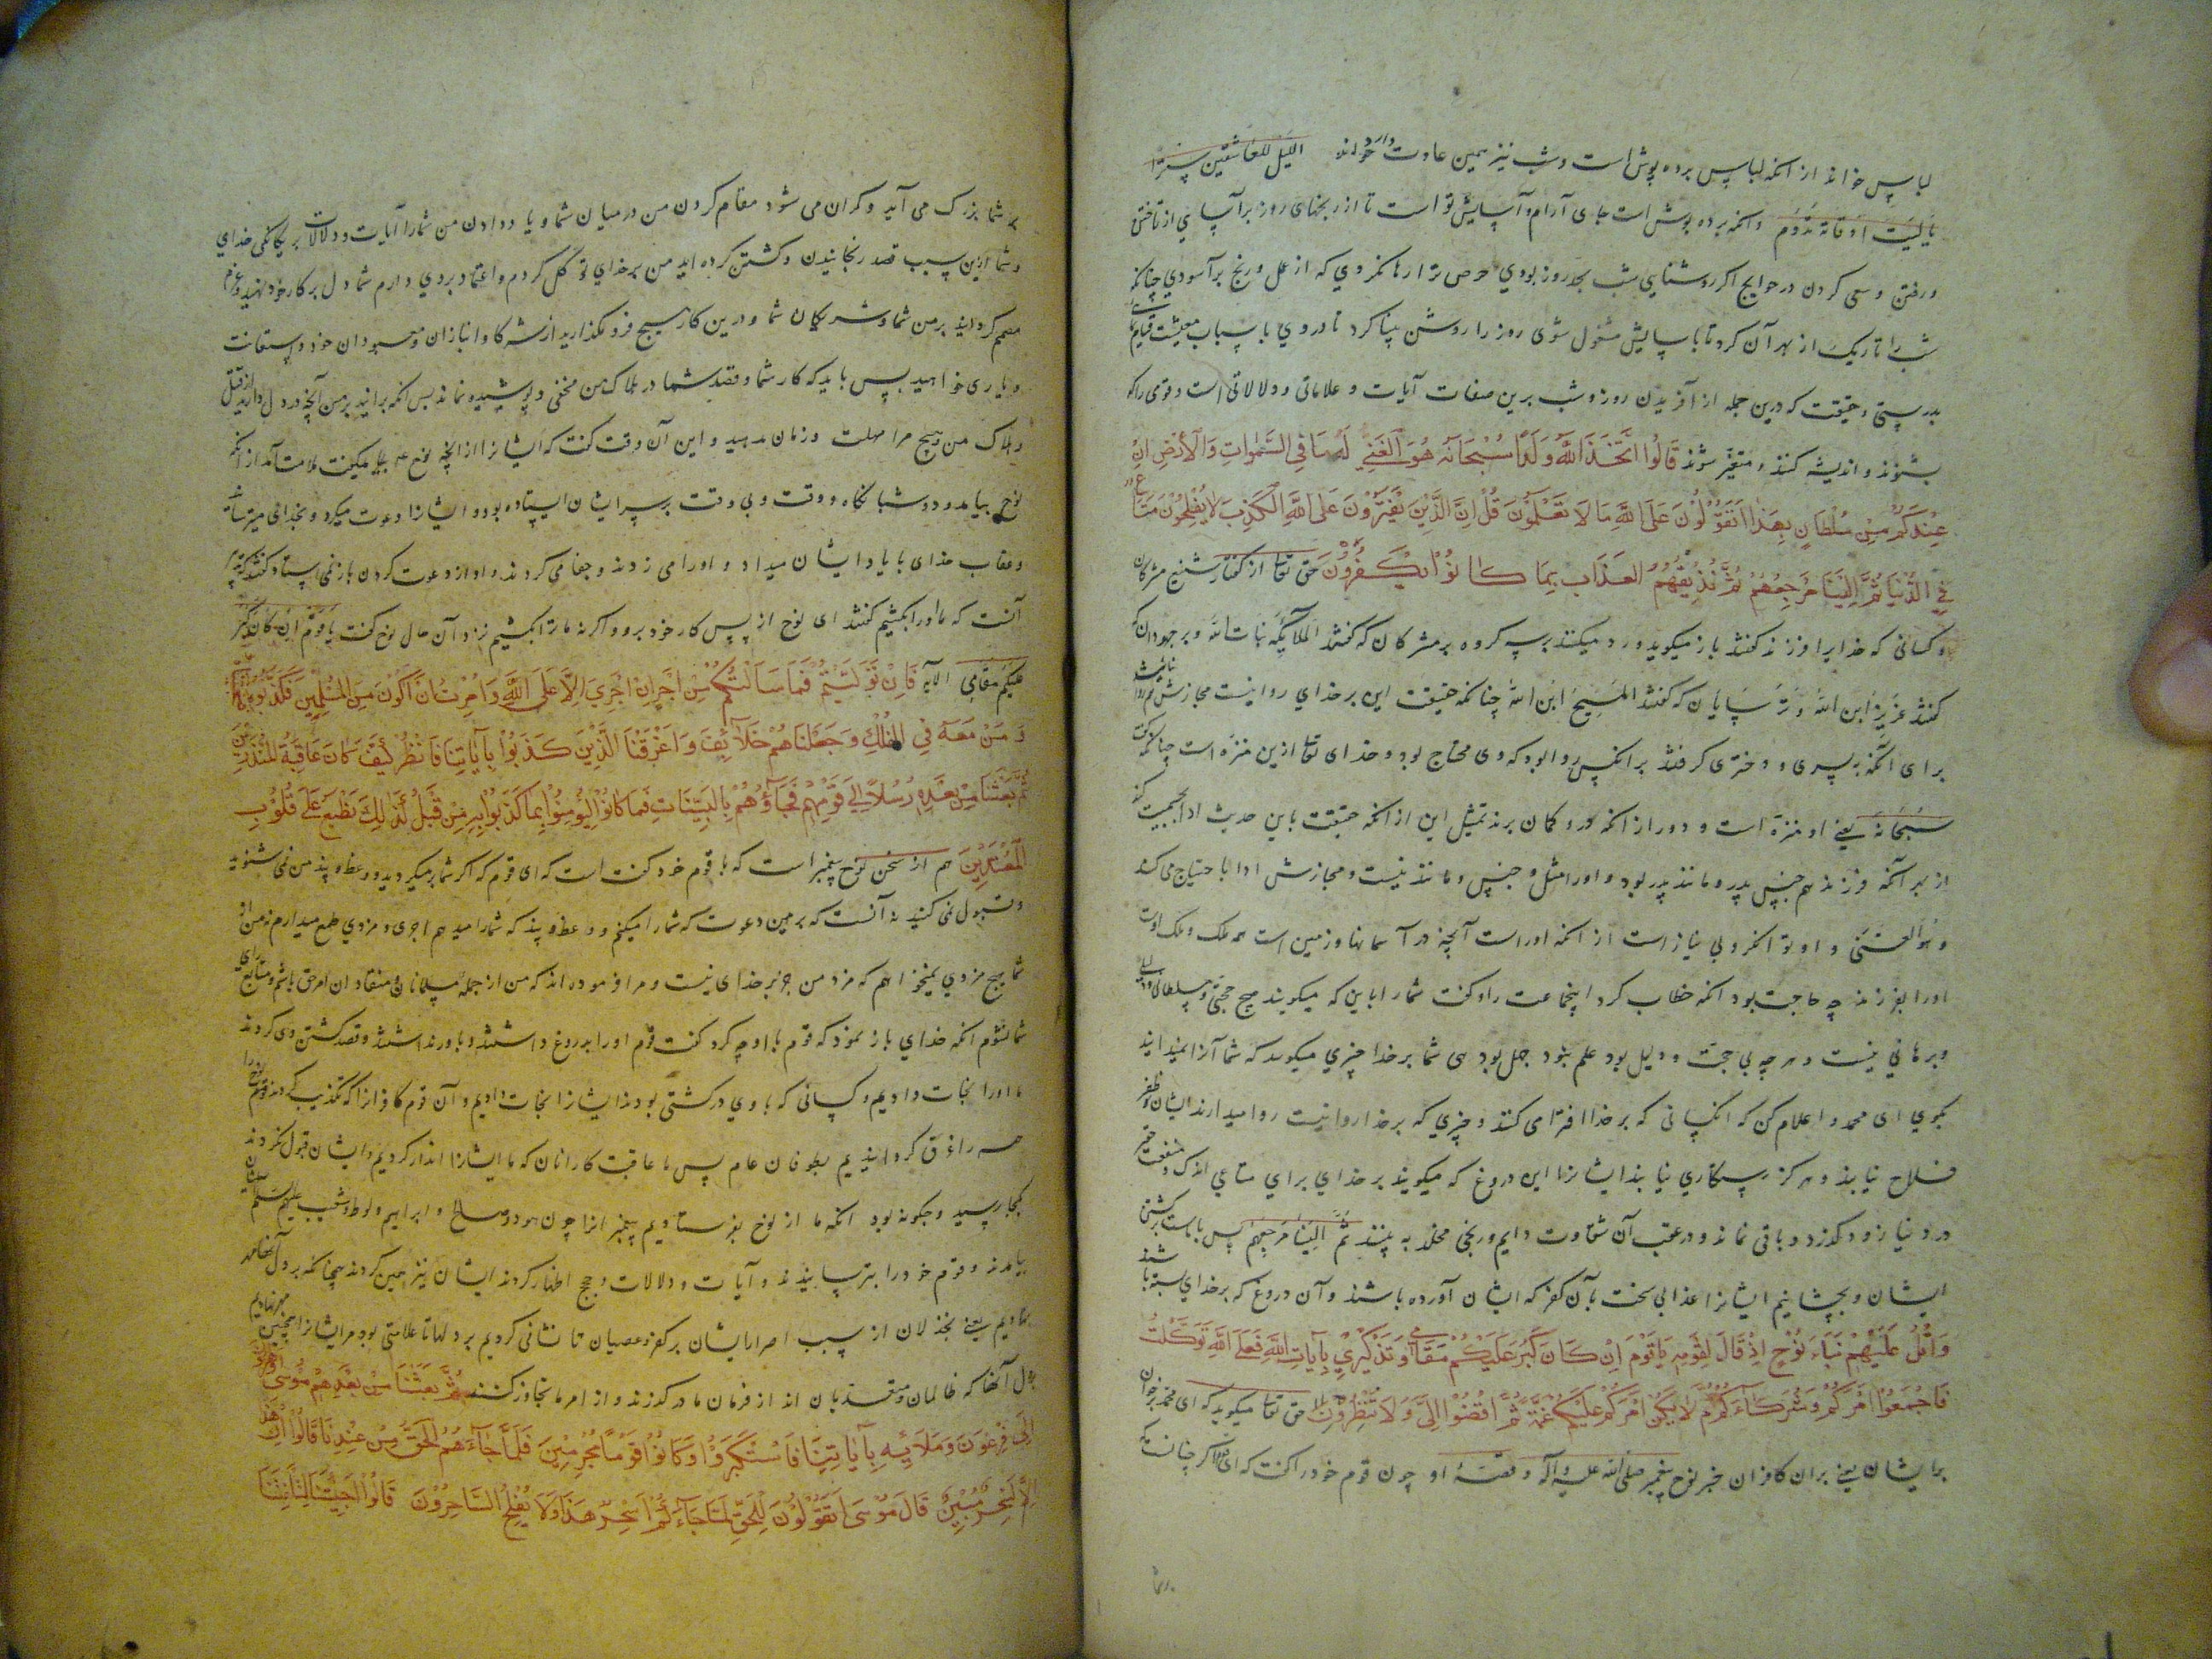 لباس خواند از انکه لباس پرده پوش است و شب نیز همین عادت دارد اللیل للعاشقین سترا
یا لیت اوقاته تدوم و انکه پرده پوش است جای آرام و آسایش تو است تا از رنجهای روز برآسایی از تاختن
و رفتن و سعی کردن در حوایج اکر روشنایی شب بجد روز بودی حرص ترا رها نکردی که از عمل و رنج برآسودی چنانکه
شب را تاریک از بهر آن کرد تا باسایش مشغول شوی روز را روشن کرد تا در وی باسباب معیشت قیام
بدرستی و حقیقت که درین جمله از آفریدن روز و شب برین صفات آیات و علاماتی و دلالاتی است قومی را که
بشنوند و اندیشه کنند و متعظ شوند قَالُوا اتَّخَذَ اللَّهُ وَلَدًا سُبْحَانَهُ هُوَ الْغَنِيُّ لَهُ مَا فِي السَّمٰوَاتِ وَالْأَرْضِ اِنْ
عِنْدَكُمْ مِنْ سُلْطَانٍ بِهَذَا اَتَقُولُونَ عَلَى اللَّهِ مَا لَا تَعْلَمُونَ قُلْ اِنَّ الَّذِينَ يَفْتَرُونَ عَلَى اللَّهِ الْكَذِبَ لَا يُفْلِحُونَ مَتَاعٌ
فِي الدُّنْيَا ثُمَّ اِلَيْنَا مَرْجِعُهُمْ ثُمَّ نُذِيقُهُمُ الْعَذَابَ بِمَا كَانُوا يَكْفُرُونَ حق تعا از کفتار مشرکان
و کسانی که خدایرا فرزند کفتند باز میکوید و رد میکند بر سه کروه بر مشرکان که کفتند الملائکه بنات الله و بر جهودان که
کفتند عزیر ابن الله و ترسایان که کفتند المسیح ابن الله چنانکه حقیقت این بر خدای روا نیست مجازش هم روا نباشد
برای آنکه پسری و دختری کرفتن بر انکس روا بود که وی محتاج بود و خدای تعا ازین منزه است چنانکه کفت
سبحانه یعنی او منزه است و دور از انکه کمان برند این از انکه حقیقت باین حدیث
از بهر آنکه فرزند هم جنس پدر و مانند پدر بود و اورا مثل و جنس و مانند نیست و مجازش ادا با حتیاج می کند
و هو الغنی و او توانکر و بی نیاز است از انکه اوراست آنچه در آسمانها و زمین است همه ملک و ملک اوست
اورا بفرزند چه حاجت بود انکه خطاب کرد اینجماعت را و کفت شما را باین که میکویید هیچ حجتی و سلطانی
و برهانی نیست و هرچه بی حجت و دلیل بود علم نبود جهل بود شما بر خدا چیزی میکویید که شما آنرا نمیدانید
بکوی ای محمد و اعلام کن که انکسانی که بر خدا افترا می کنند و چیزی که بر خدا روا نیست روا میدارند ایشان ظفر
فلاح نیابند و هرکز رستکاری نیابند ایشانرا این دروغ که میکویند بر خدای برای متاعی اندک و منفعت حقیر
در دنیا زود کذرد و باقی نماند و در عقب آن شقاوت دایم و رنجی مخلد به بینند ثم الینا مرجعهم پس باماست بازکشتن
ایشان و بچشانیم ایشانرا عذابی سخت بآن کفر که ایشان آورده باشند و آن دروغ که بر خدای بسته باشند
وَاتْلُ عَلَيْهِمْ نَبَأَ نُوحٍ اِذْ قَالَ لِقَوْمِهِ يَا قَوْمِ اِنْ كَانَ كَبُرَ عَلَيْكُمْ مَقَامِي وَتَذْكِيرِي بِآيَاتِ اللَّهِ فَعَلَى اللَّهِ تَوَكَّلْتُ
فَاَجْمِعُوا اَمْرَكُمْ وَشُرَكَاءَكُمْ ثُمَّ لَا يَكُنْ اَمْرُكُمْ عَلَيْكُمْ غُمَّةً ثُمَّ اقْضُوا اِلَيَّ وَلَا تُنْظِرُونِ حق تعا میکوید که ای محمد برخوان
بر ایشان یعنی بران کافران خبر نوح پیغمبر صلی الله علیه و آله و قصه او چون قوم خود را کفت که ای قوم اکر چنانست که
بر شما بزرک می آید و کران می شود مقام کردن من در میان شما و یاد دادن من شما را آیات و دلالات بر یکانکی خدای
و شما ازین سبب قصد رنجانیدن و کشتن کرده اید من بر خدای توکل کردم و اعتماد بر وی دارم شما دل بر کار خود نهید و عزم
مصمم کردانید بر من شما و شریکان شما و درین کار هیچ فرو مکذارید از شرکا و انبازان و معبودان خود و استعانت
و یاری خواهید پس باید که کار شما و قصد شما در هلاک من مخفی و پوشیده نماند پس انکه برانید بر من آنچه در دل دارید از قتل
و هلاک من و هیچ مرا مهلت و زمان مدهید و این آن وقت کفت که ایشانرا
نوح بیامد و در شبانکاه و وقت و بی وقت بر سر ایشان ایستاده بود و ایشانرا دعوت میکرد و بخدای میترسانید
و عقاب خدای با یاد ایشان میداد و اورا می زدند و جفا می کردند و او از دعوت کردن باز نمی ایستاد
آنست که ما اورا بکشیم کفتند ای نوح از پس کار خود برو و اکر نه ما ترا بکشیم نزد آن حال نوح کفت یا قوم ان کان کبر
علیکم مقامی الآیه فَاِنْ تَوَلَّيْتُمْ فَمَا سَأَلْتُكُمْ مِنْ اَجْرٍ اِنْ اَجْرِيَ اِلَّا عَلَى اللَّهِ وَاُمِرْتُ اَنْ اَكُونَ مِنَ الْمُسْلِمِينَ فَكَذَّبُوهُ فَنَجَّيْنَاهُ
وَ مَنْ مَعَهُ فِي الْفُلْكِ وَجَعَلْنَاهُمْ خَلَائِفَ وَاَغْرَقْنَا الَّذِينَ كَذَّبُوا بِآيَاتِنَا فَانْظُرْ كَيْفَ كَانَ عَاقِبَةُ الْمُنْذَرِينَ
ثُمَّ بَعَثْنَا مِنْ بَعْدِهِ رُسُلًا اِلَى قَوْمِهِمْ فَجَاؤُهُمْ بِالْبَيِّنَاتِ فَمَا كَانُوا لِيُؤْمِنُوا بِمَا كَذَّبُوا بِهِ مِنْ قَبْلُ كَذَلِكَ نَطْبَعُ عَلَى قُلُوبِ
الْمُعْتَدِينَ هم از سخن نوح پیغمبر است که با قوم خود کفت است که ای قوم که اکر شما برمیکردید و وعظ و پند من نمی شنوید
و قبول نمی کنید نه آنست که برین دعوت که شما را میکنم و وعظ و پند که شما را میدهم اجری و مزدی طمع میدارم نه من از
شما هیچ مزدی نمیخواهم که مزد من جز بر خدای نیست و مرا فرموده اند که من از جمله مسلمانان و منقادان امر حق باشم و متابع رای
شما نشوم انکه خدای باز نمود که قوم با او چه کرد کفت قوم اورا بدروغ داشتند و باور نداشتند و قصد کشتن وی کردند
ما اورا نجات دادیم و کسانی که با وی در کشتی بودند ایشانرا نجات دادیم و آن قوم کافرانرا که تکذیب کردند نوح را
همه را غرق کردانیدیم بطوفان عام پس عاقبت کار آنان که ما ایشانرا انذار کردیم و ایشان قبول نکردند
بکجا رسید و چکونه بود انکه ما از نوح بفرستادیم پیغمبرانرا چون هود و صالح و ابراهیم و لوط و شعیب علیهم السلام
بیامدند و قوم خود را بترسانیدند و آیات و دلالات و حجج اظهار کردند ایشان نیز همین کردند همچنانکه بر دل آنها مهر
نهادیم یعنی بخذلان از سبب اصرار ایشان بر کفر و عصیان تا نشانی کردیم بر دلها تا علامتی بود مر ایشانرا همچنین مهر نهادیم
بر دل آنها که ظالمان و متعدیان اند از فرمان ما در کذرند و از امر ما تجاوز کنند ثُمَّ بَعَثْنَا مِنْ بَعْدِهِمْ مُوسَى وَهَارُونَ
اِلَى فِرْعَوْنَ وَمَلَائِهِ بِآيَاتِنَا فَاسْتَكْبَرُوا وَكَانُوا قَوْمًا مُجْرِمِينَ فَلَمَّا جَاءَهُمُ الْحَقُّ مِنْ عِنْدِنَا قَالُوا اِنَّ هَذَا
لَسِحْرٌ مُبِينٌ قَالَ مُوسَى اَتَقُولُونَ لِلْحَقِّ لَمَّا جَاءَكُمْ اَسِحْرٌ هَذَا وَلَا يُفْلِحُ السَّاحِرُونَ قَالُوا اَجِئْتَنَا لِتَلْفِتَنَا